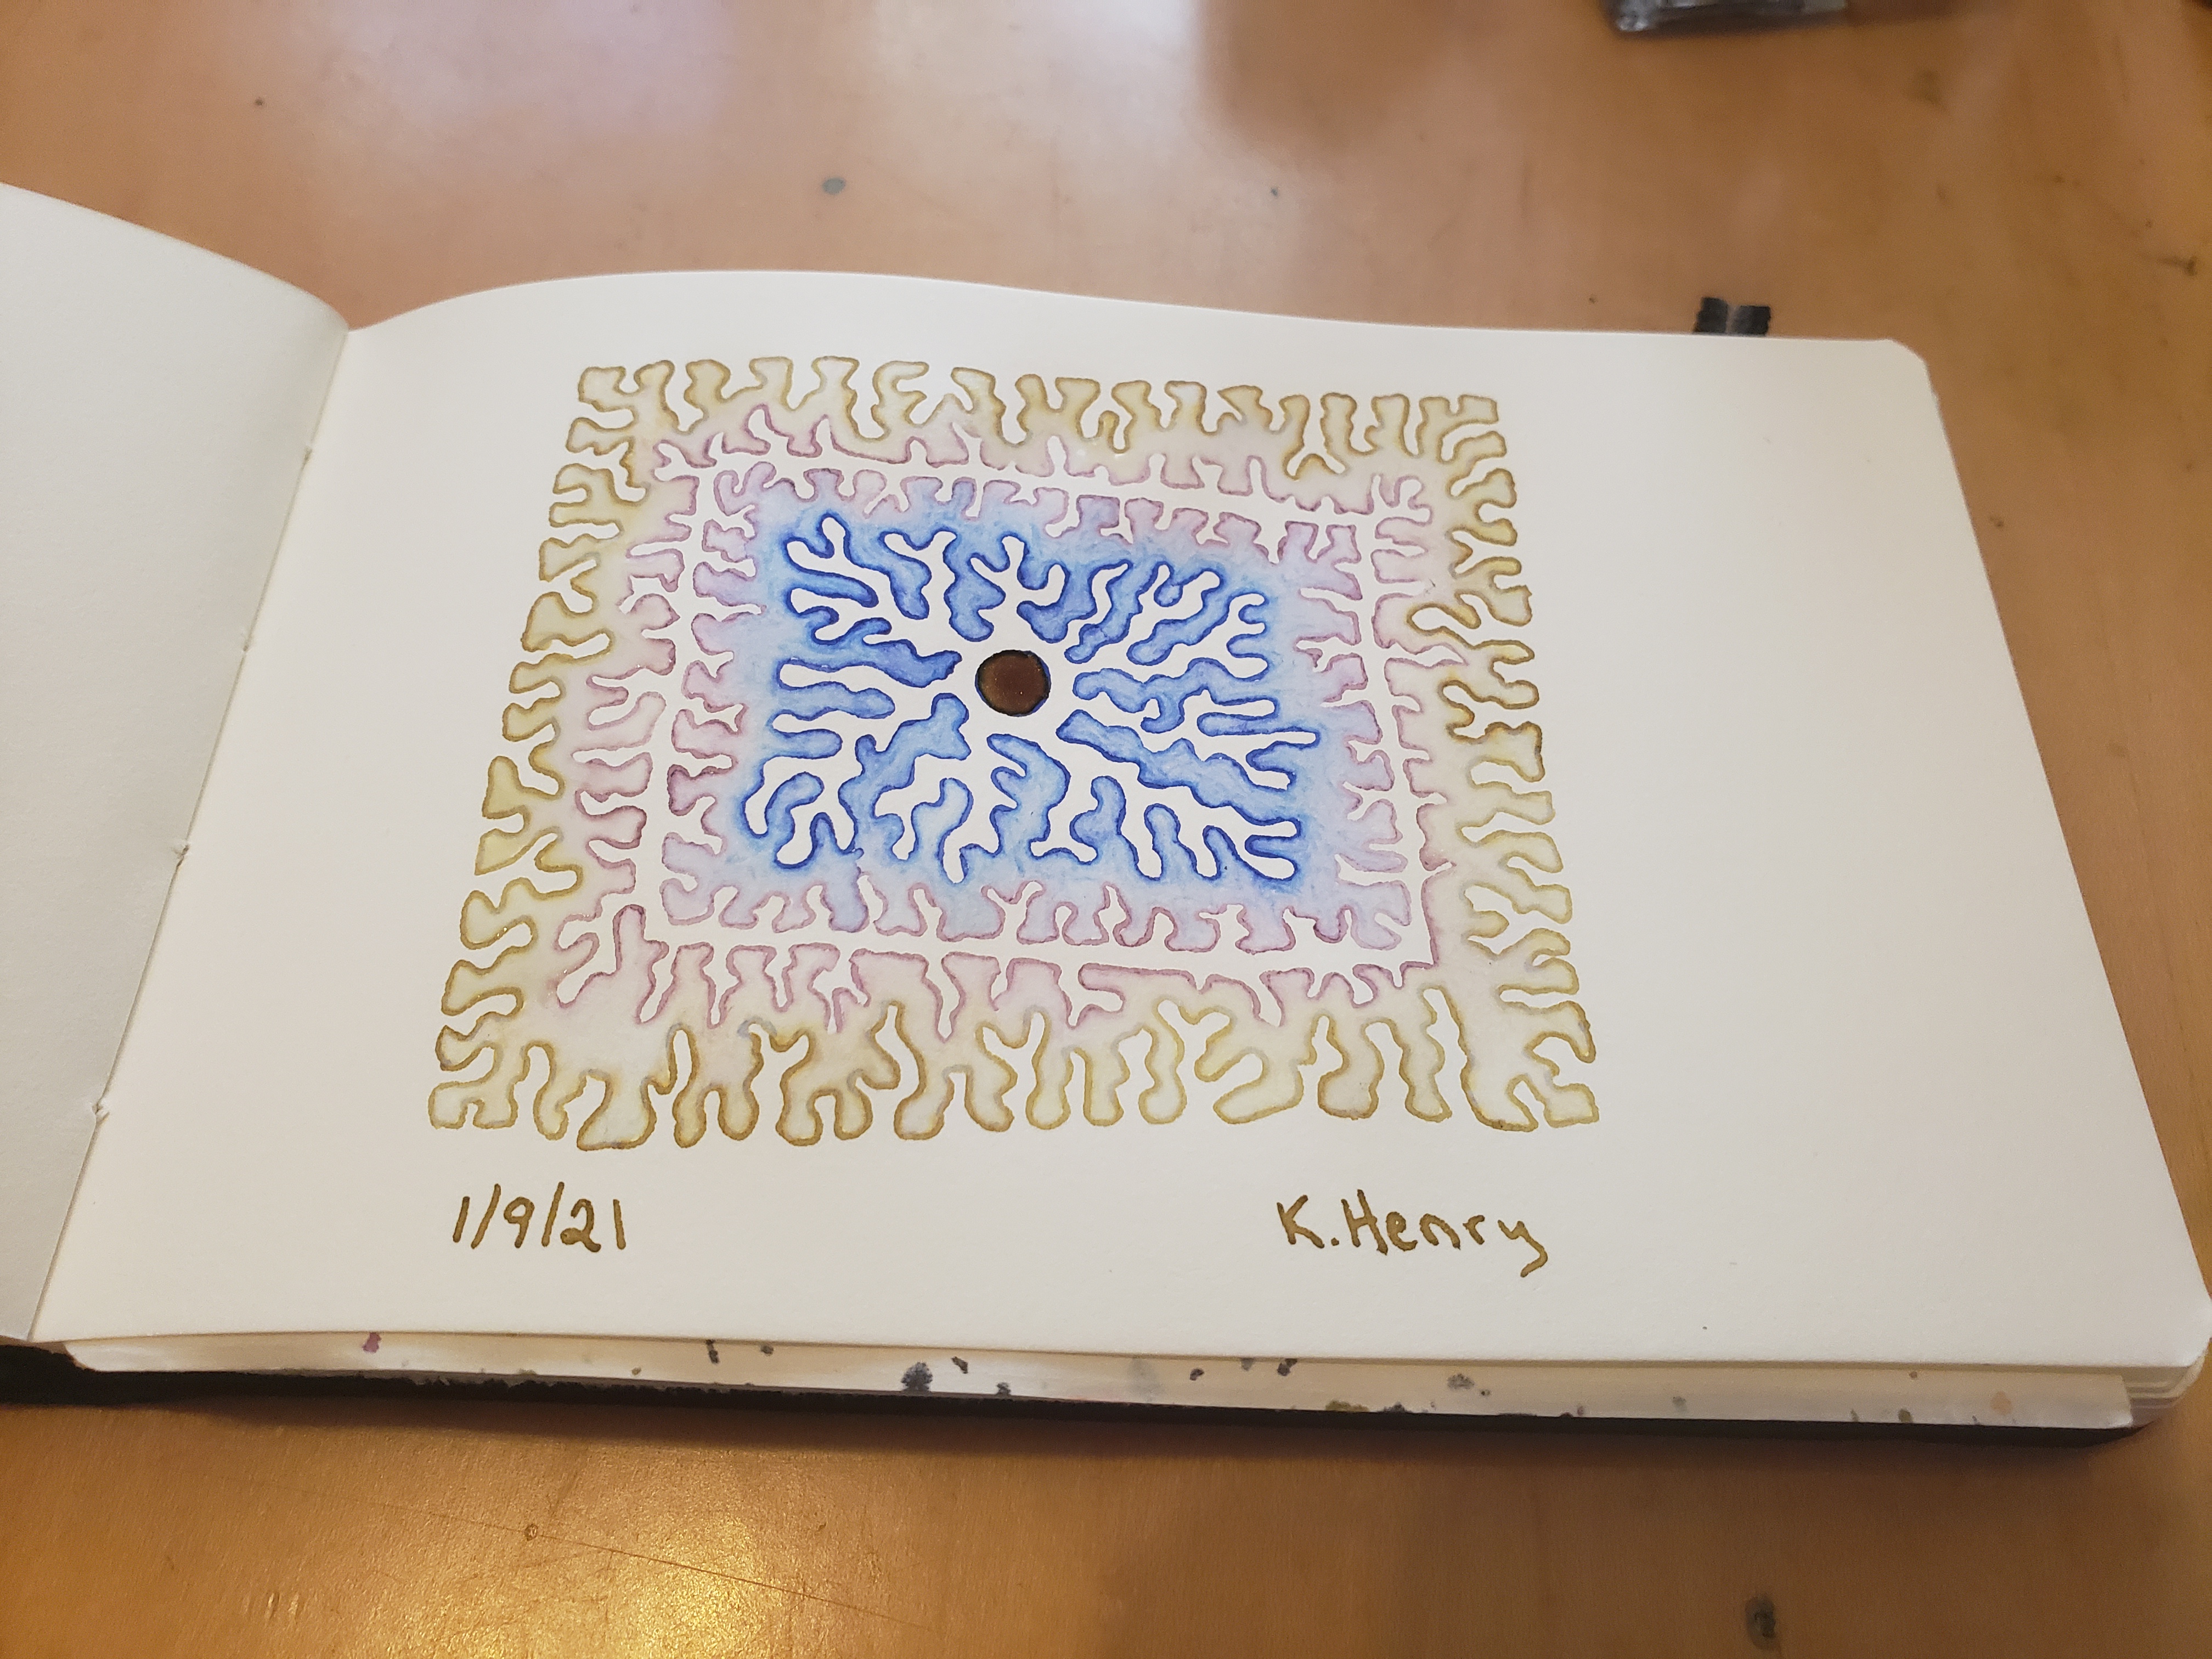 1/9/21 K.Henry